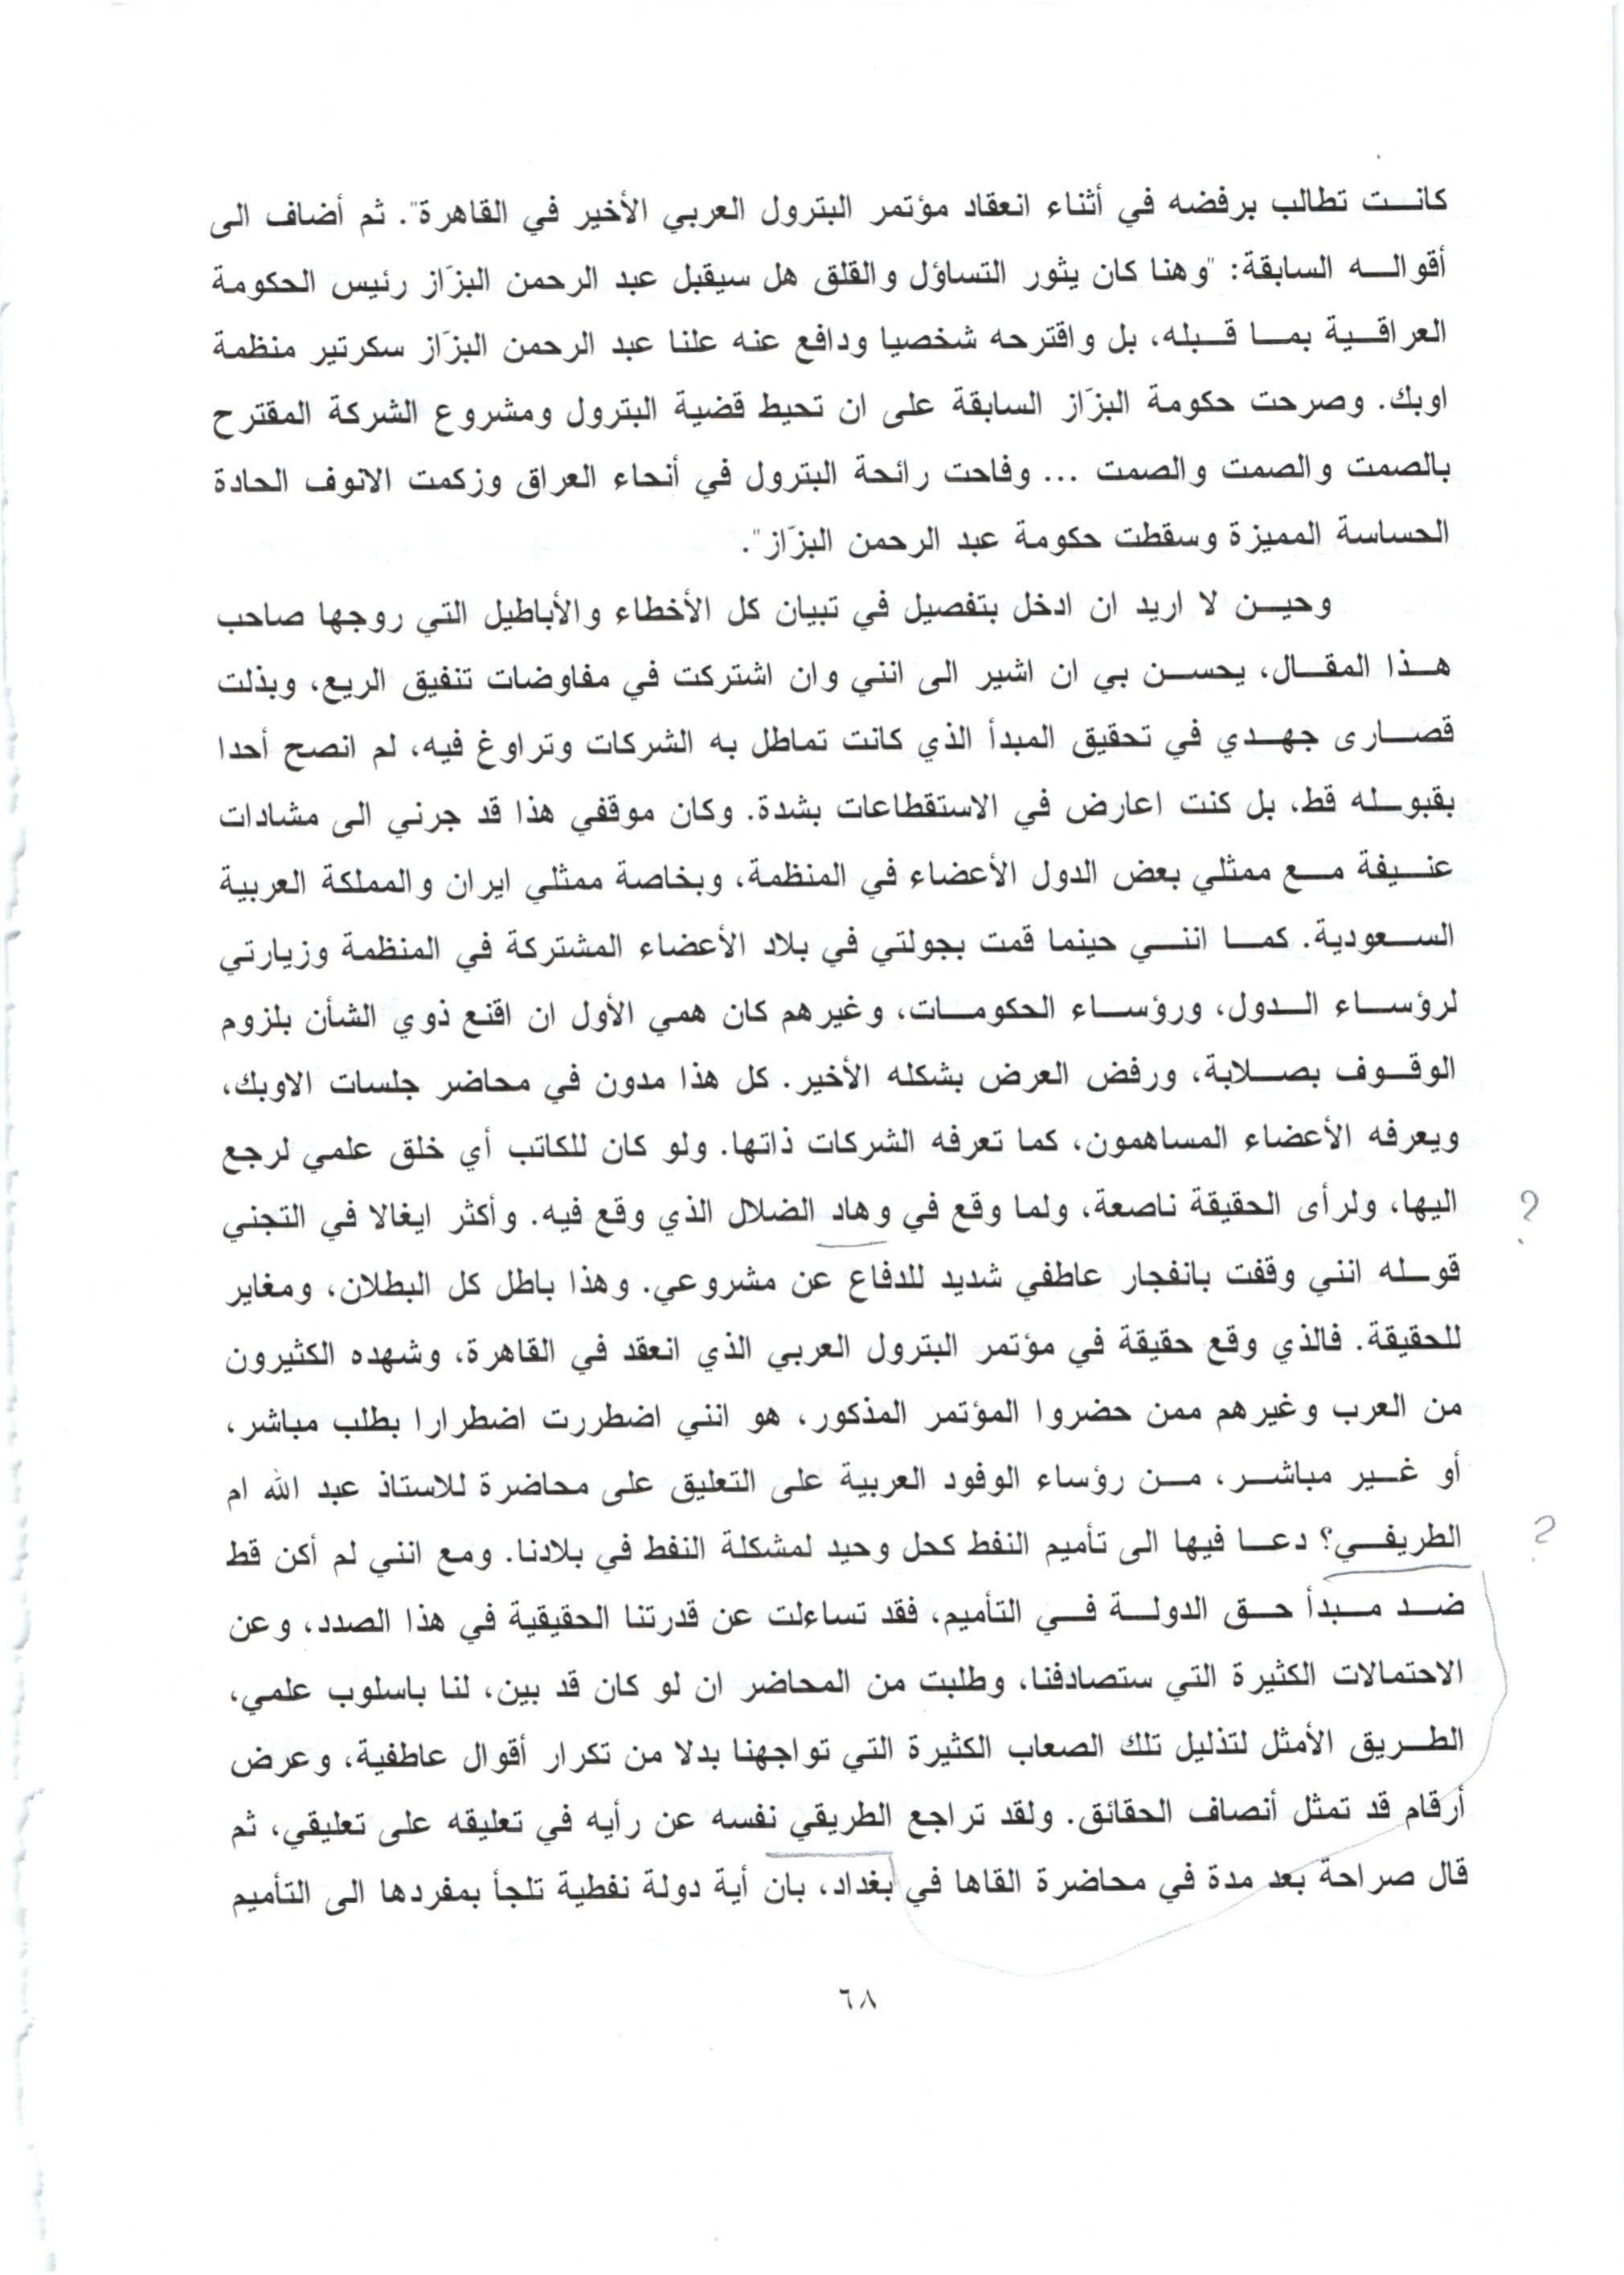 كانت تطالب برفضه في أثناء انعقاد مؤتمر البترول العربي الأخير في القاهرة". ثم أضاف الى
أقواله السابقة: "وهنا كان يثور التساؤل والقلق هل سيقبل عبد الرحمن البزّاز رئيس الحكومة
العراقية بما قبله، بل واقترحه شخصيا ودافع عنه علنا عبد الرحمن البزّاز سكرتير منظمة
اوبك. وصرحت حكومة البزّاز السابقة على ان تحيط قضية البترول ومشروع الشركة المقترح
بالصمت والصمت والصمت ... وفاحت رائحة البترول في أنحاء العراق وزكمت الانوف الحادة
الحساسة المميزة وسقطت حكومة عبد الرحمن البزّاز".
وحين لا اريد ان ادخل بتفصيل في تبيان كل الأخطاء والأباطيل التي روجها صاحب
هذا المقال، يحسن بي ان اشير الى انني وان اشتركت في مفاوضات تنفيق الريع، وبذلت
قصارى جهدي في تحقيق المبدأ الذي كانت تماطل به الشركات وتراوغ فيه، لم انصح أحدا
بقبوله قط، بل كنت اعارض في الاستقطاعات بشدة. وكان موقفي هذا قد جرني الى مشادات
عنيفة مع ممثلي بعض الدول الأعضاء في المنظمة، وبخاصة ممثلي ايران والمملكة العربية
السعودية. كما انني حينما قمت بجولتي في بلاد الأعضاء المشتركة في المنظمة وزيارتي
لرؤساء الدول، ورؤساء الحكومات، وغيرهم كان همي الأول ان اقنع ذوي الشأن بلزوم
الوقوف بصلابة، ورفض العرض بشكله الأخير. كل هذا مدون في محاضر جلسات الاوبك،
ويعرفه الأعضاء المساهمون، كما تعرفه الشركات ذاتها. ولو كان للكاتب أي خلق علمي لرجع
اليها، ولرأى الحقيقة ناصعة، ولما وقع في وهاد الضلال الذي وقع فيه. وأكثر ايغالا في التجني ?
قوله انني وقفت بانفجار عاطفي شديد للدفاع عن مشروعي. وهذا باطل كل البطلان، ومغاير
للحقيقة. فالذي وقع حقيقة في مؤتمر البترول العربي الذي انعقد في القاهرة، وشهده الكثيرون
من العرب وغيرهم ممن حضروا المؤتمر المذكور، هو انني اضطررت اضطرارا بطلب مباشر،
أو غير مباشر، من رؤساء الوفود العربية على التعليق على محاضرة للاستاذ عبد الله ام
الطريفي؟ دعا فيها الى تأميم النفط كحل وحيد لمشكلة النفط في بلادنا. ومع انني لم أكن قط ?
ضد مبدأ حق الدولة في التأميم، فقد تساءلت عن قدرتنا الحقيقية في هذا الصدد، وعن
الاحتمالات الكثيرة التي ستصادفنا، وطلبت من المحاضر ان لو كان قد بين، لنا باسلوب علمي،
الطريق الأمثل لتذليل تلك الصعاب الكثيرة التي تواجهنا بدلا من تكرار أقوال عاطفية، وعرض
أرقام قد تمثل أنصاف الحقائق. ولقد تراجع الطريقي نفسه عن رأيه في تعليقه على تعليقي، ثم
قال صراحة بعد مدة في محاضرة القاها في بغداد، بان أية دولة نفطية تلجأ بمفردها الى التأميم
٦٨